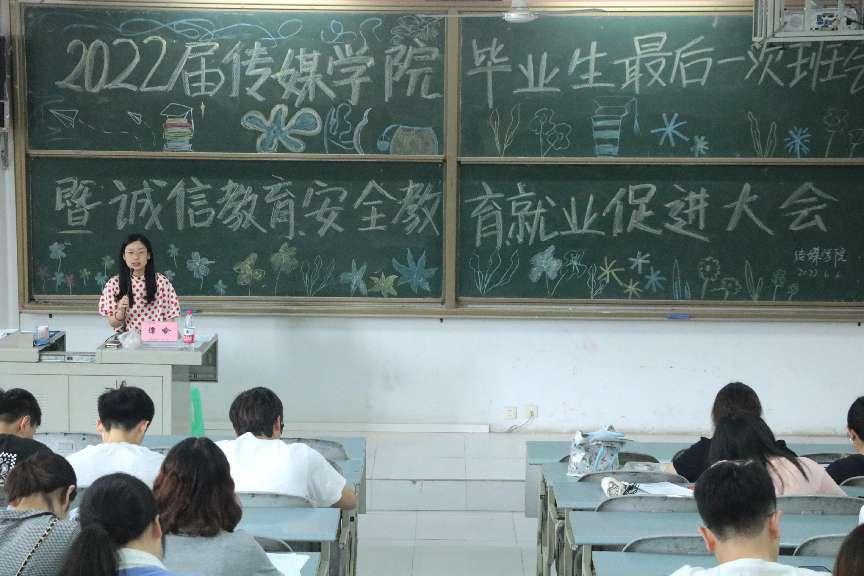 2022届传媒学院毕业生最后一次班会
暨诚信教育、安全教育就业促进大会
传媒学院
2022.6.2
谭 唅